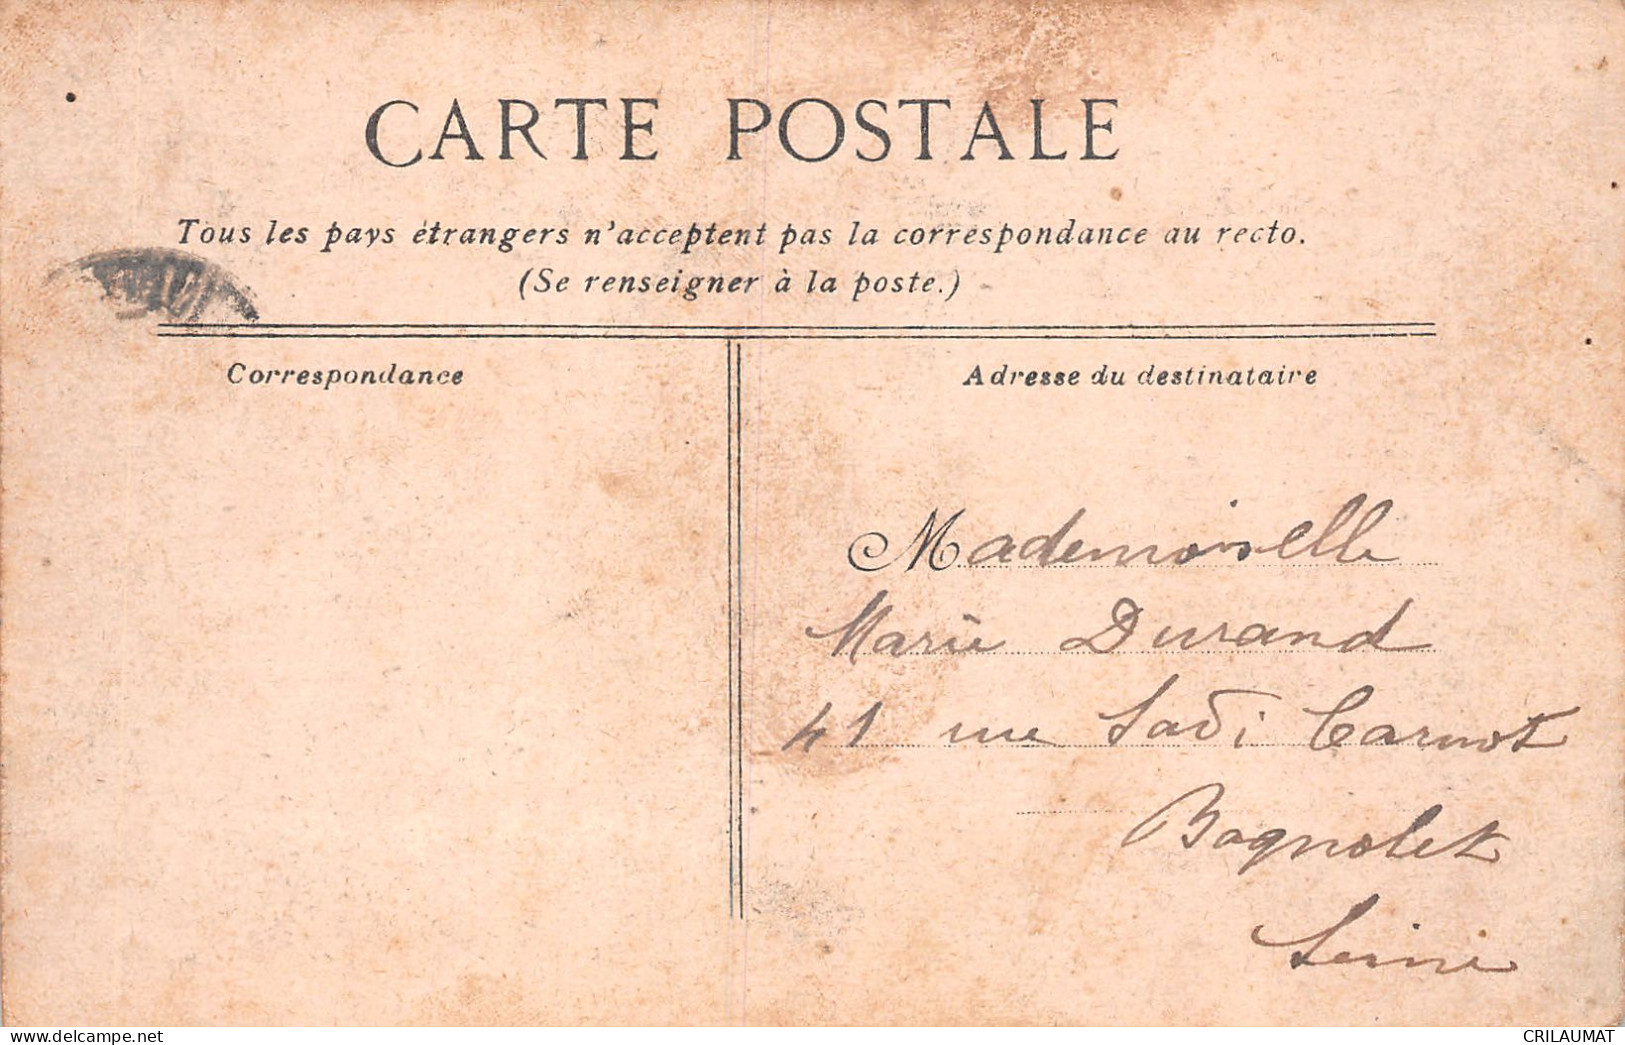 CARTE POSTALE
Tous les pays étrangers n'acceptent pas la correspondance au recto.
(Se renseigner à la poste.)
Correspondance
Adresse du destinataire
Mademoiselle
Marie Durand
41 rue Sadi Carnot
Bagnolet
Seine
CRILAUMAT